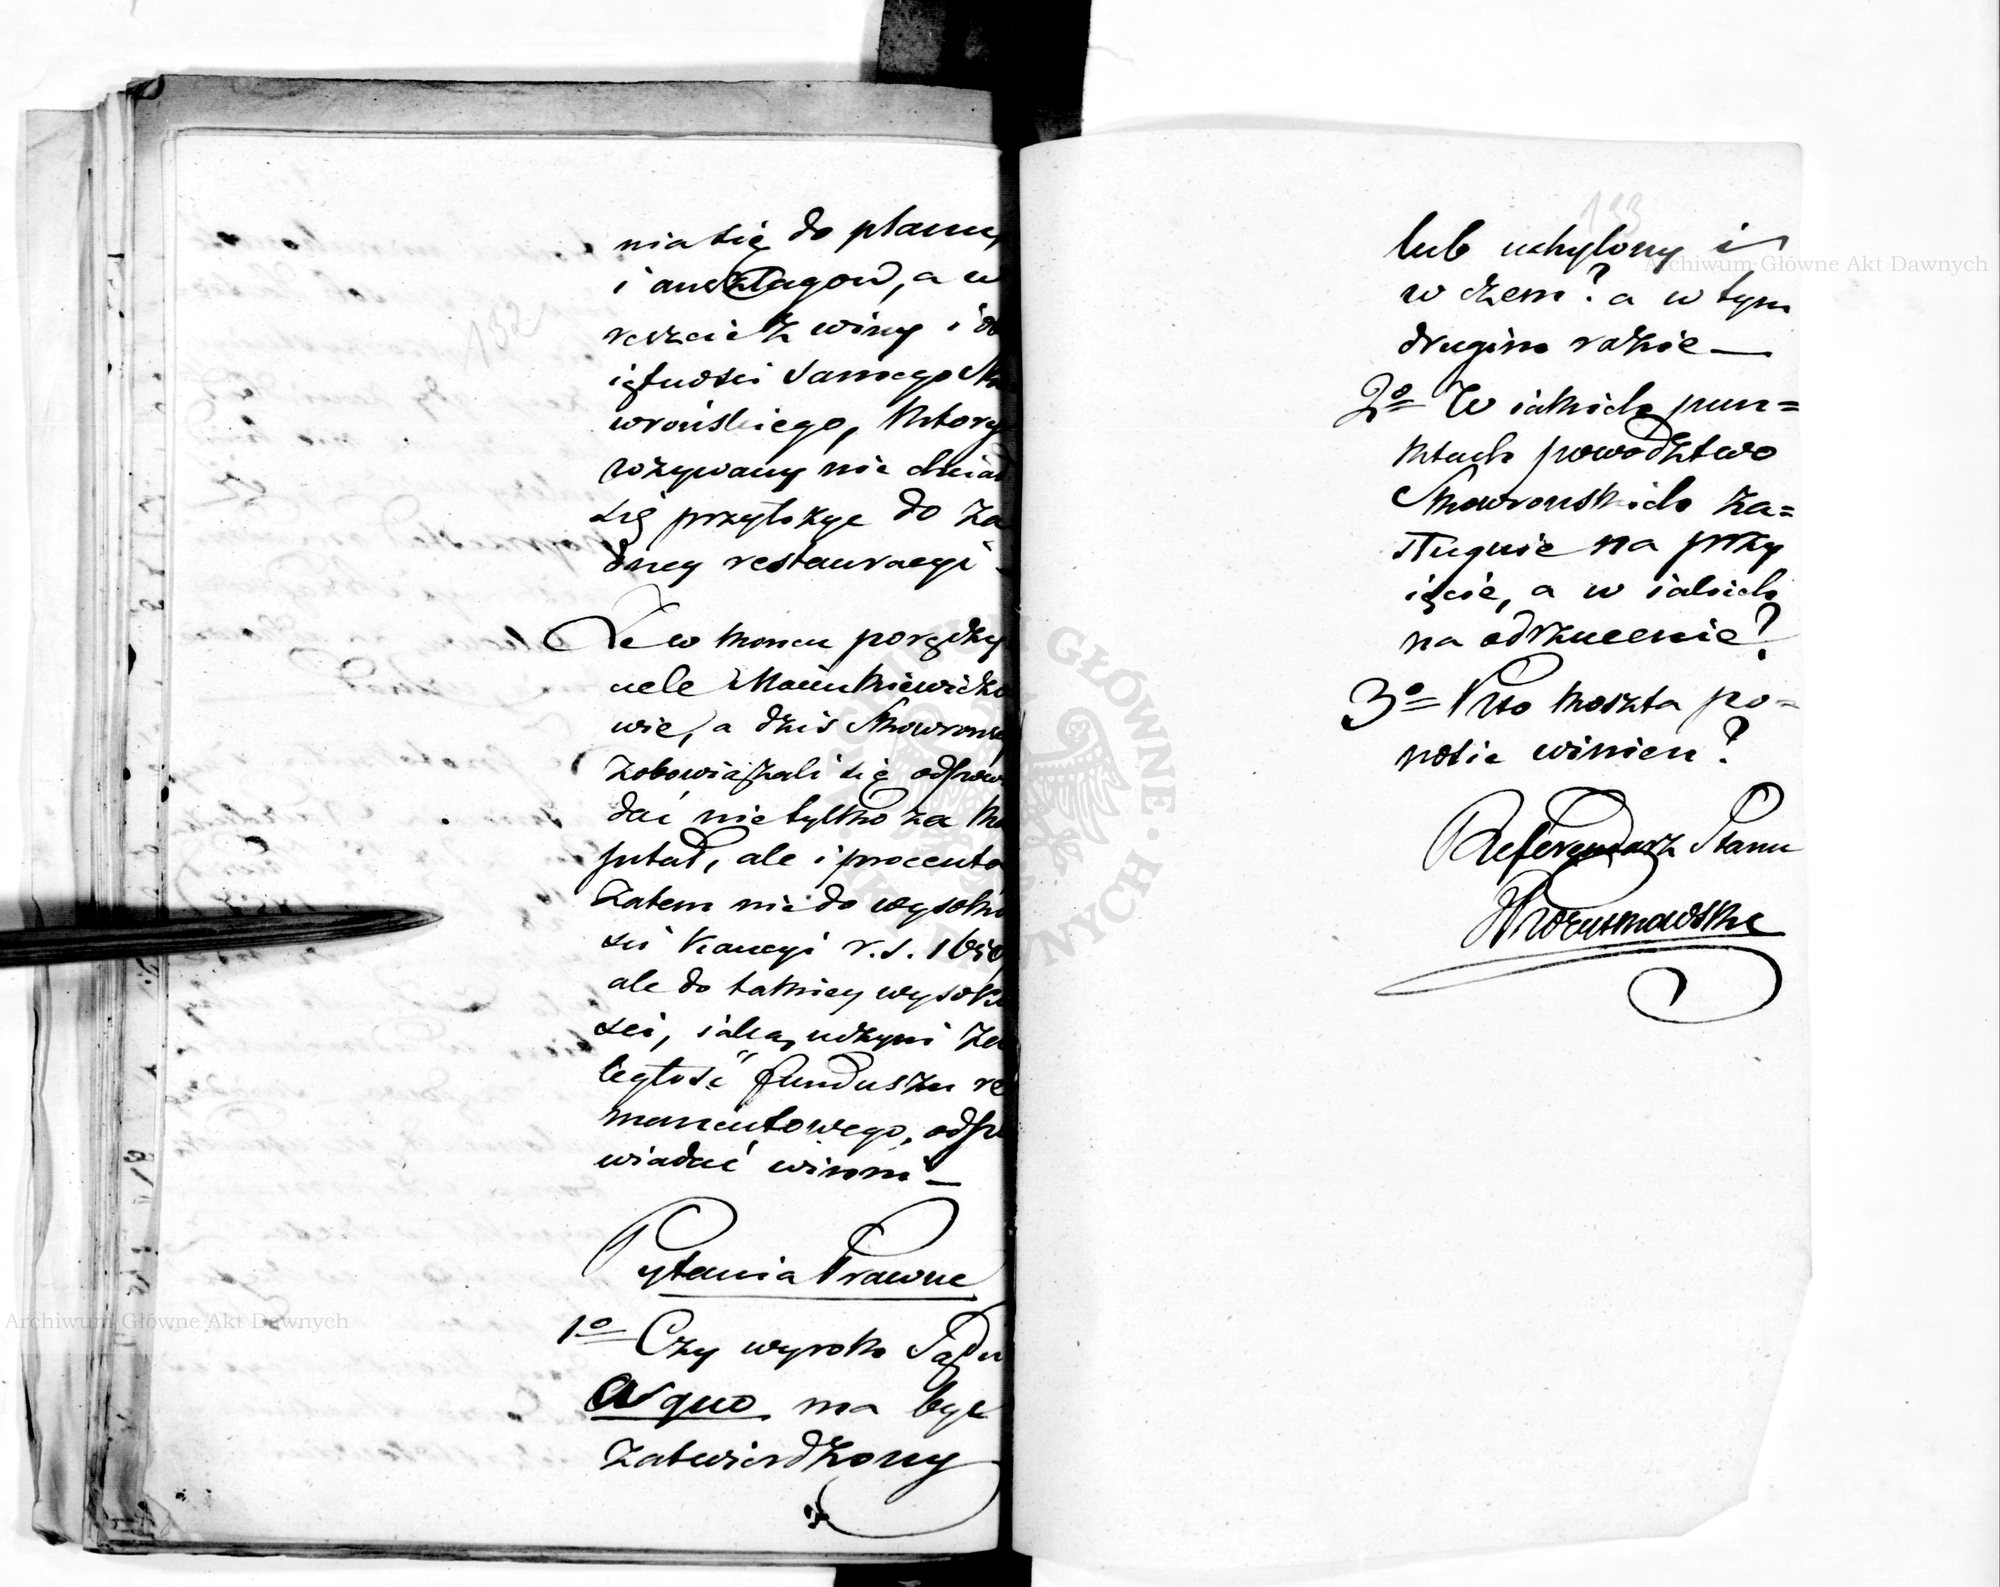 nia się do planu,
i anszlagow, a w
reszcie z winy i
samego Sko
wrońskiego, ktory
wzywany nie chciał
się przyłożyc do ża
dney restauracyi
Że w koncu poręczy
ciele Mankiewiczo
wie, a dziś Skowronscy
zobowiązali się odpowia
dać nie tylko za ka
pitał, ale i procenta
zatem nie do wysoko
ści kaucyi r. s.
ale do takiey wysoko
ści, iaką uczyni za
ległość funduszu re
manentowego, odpo
wiadać winni —
Pytania Prawne
1o Czy wyrok Sądu
a quo ma byc
zatwierdzony
133
lub uchylony i
w czem? a w tym
drugim razie —
2o W iakich pun=
ktach powodztwo
Skowronskich za=
sługuie na przy
ięcie, a w iakich
na odrzucenie?
3o Kto koszta po=
nosic winien?
Referendarz Stanu
Archiwum Główne Akt Dawnych
Archiwum Główne Akt Dawnych